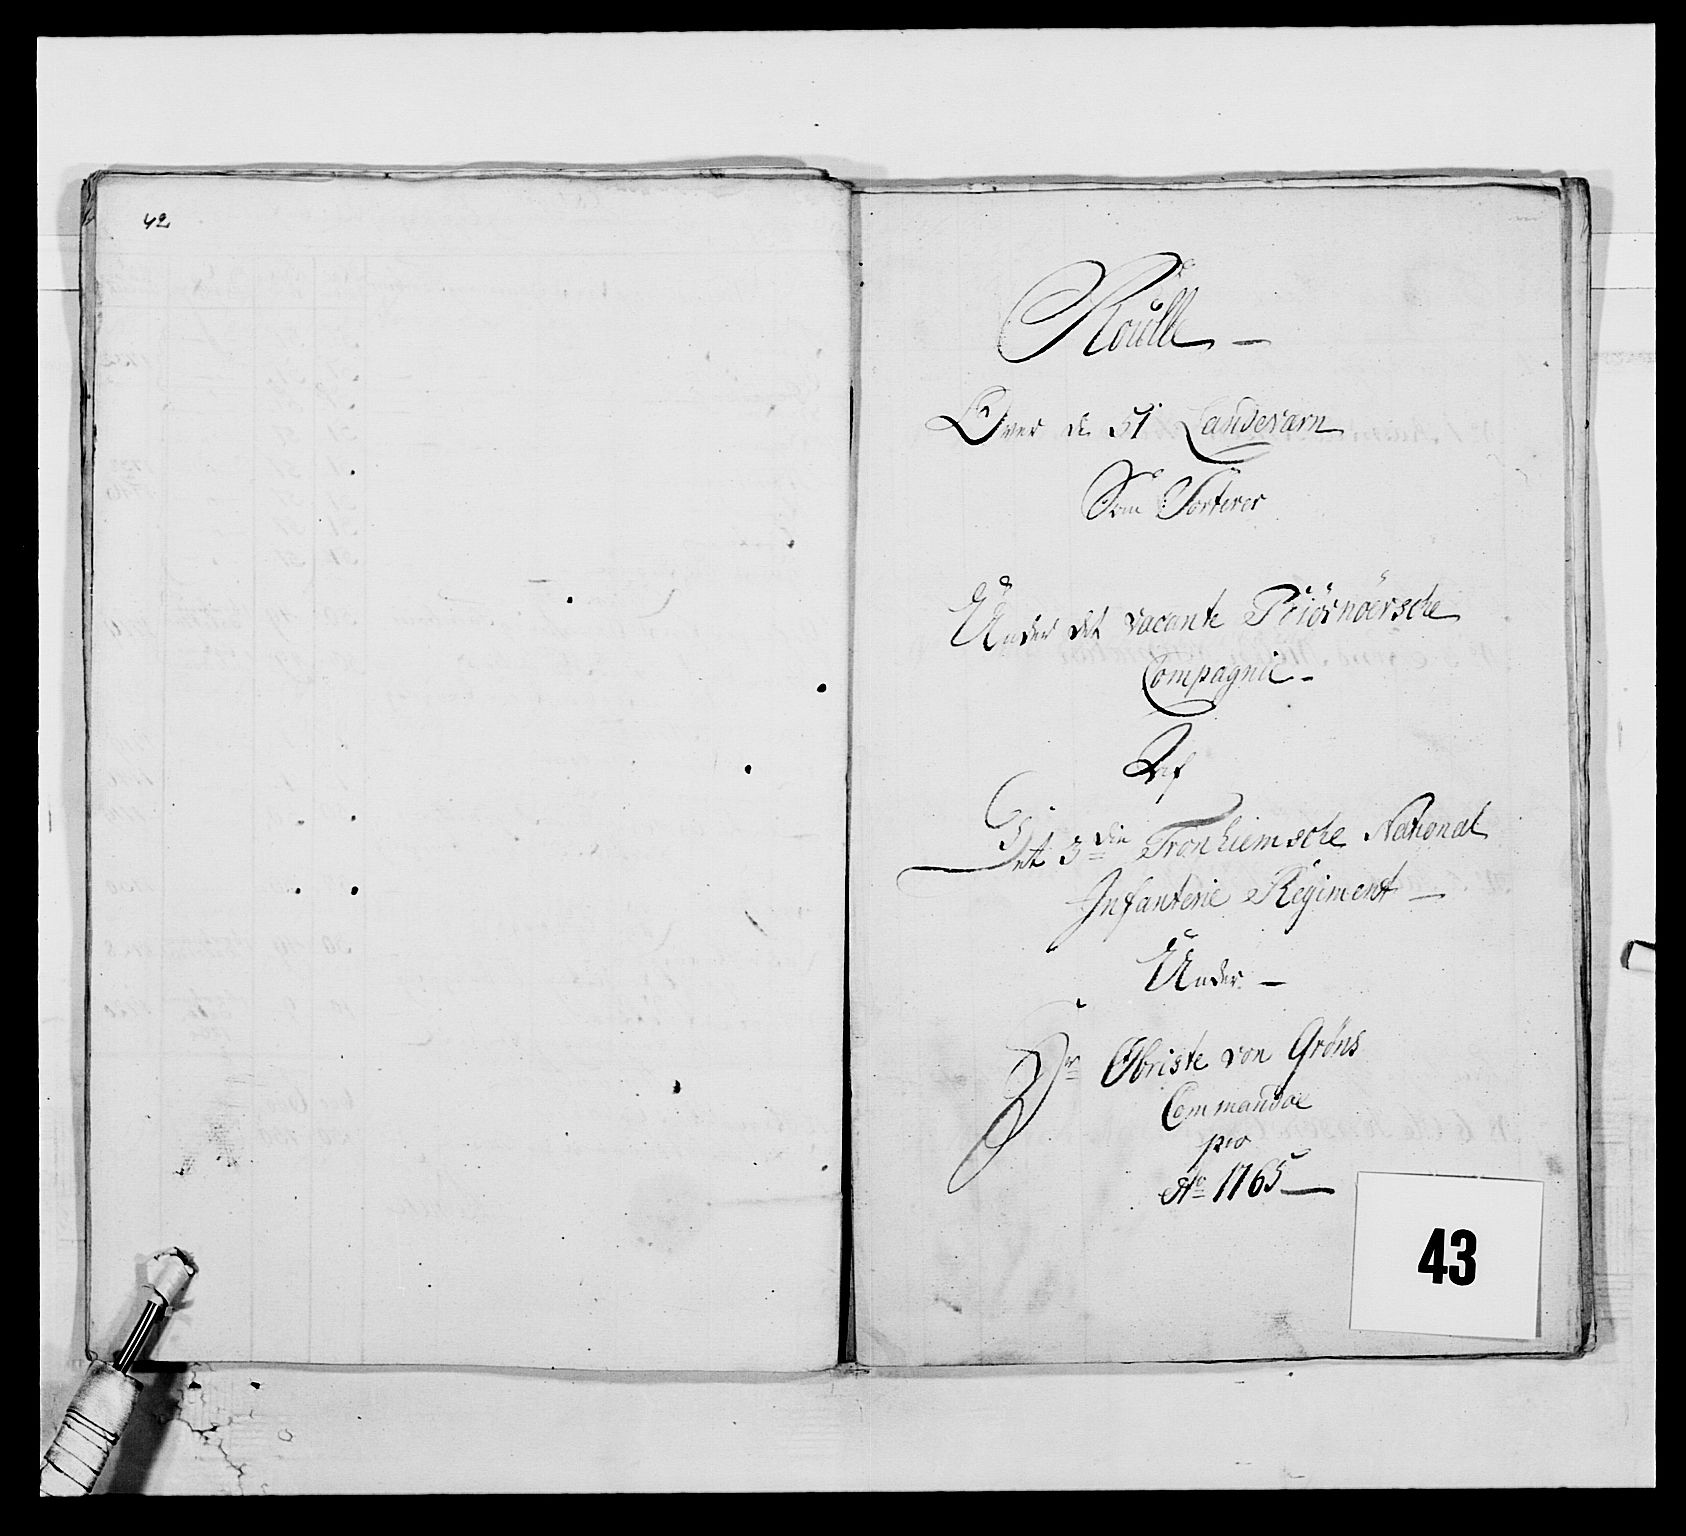 42
Roulle —
Over de 51 Landeværn
Som Sorterer
Under det vacante Biörnöersche
Compagnie -
Af
Det 3die Tronhiemsche National
Infanterie Regiment —
Under —
Hr Obriste von Gröns
Commandoe
pro
Ao 1765 —
43